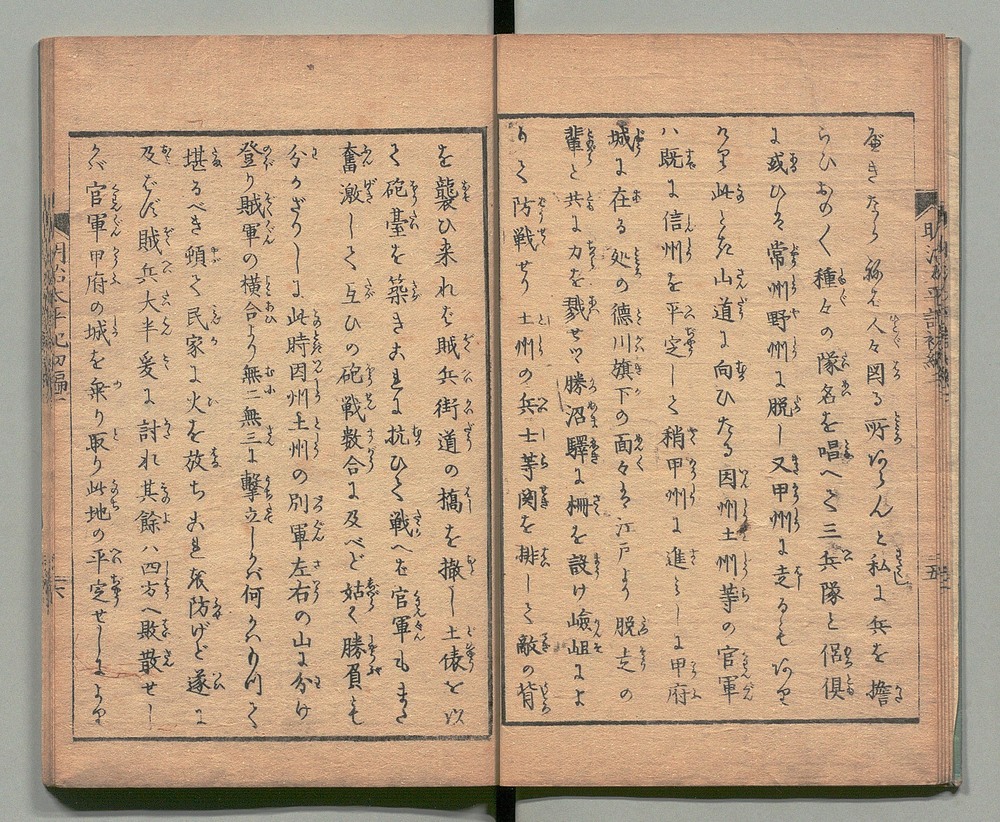 べきなら猶も人々図る所あらんと私に兵を擔
らひおの〱種々の隊名を唱へて三兵隊と侶俱
に或ひは常州野州に脱し又甲州に走るもあり
けり此とき山道に向ひたる因州土州等の官軍
ハ既に信州を平定して稍甲州に進みしに甲府
城に在る処の徳川旗下の面々は江戸より脱走の
輩と共に力を戮せつゝ勝沼驛に柵を設け嶮岨によ
りて防戦せり土州の兵士等関を排して敵の背
を襲ひ来れば賊兵街道の橋を撤し土俵を以
て砲臺を築きこれに抗ひて戦へど官軍もまた
奮激して互ひの砲戦数合に及べど姑く勝負も
分らざりしに此時因州土州の別軍左右の山に分け
登り賊軍の横合より無二無三に撃立しかば何かハもつて
堪るべき頓て民家に火を放ちこれを防げど遂に
及ばず賊兵大半爰に討れ其餘ハ四方へ敗散せし
かバ官軍甲府の城を乗り取り此地の平定せしにより
明治太平記初編一
五
明治太平記初編一
六